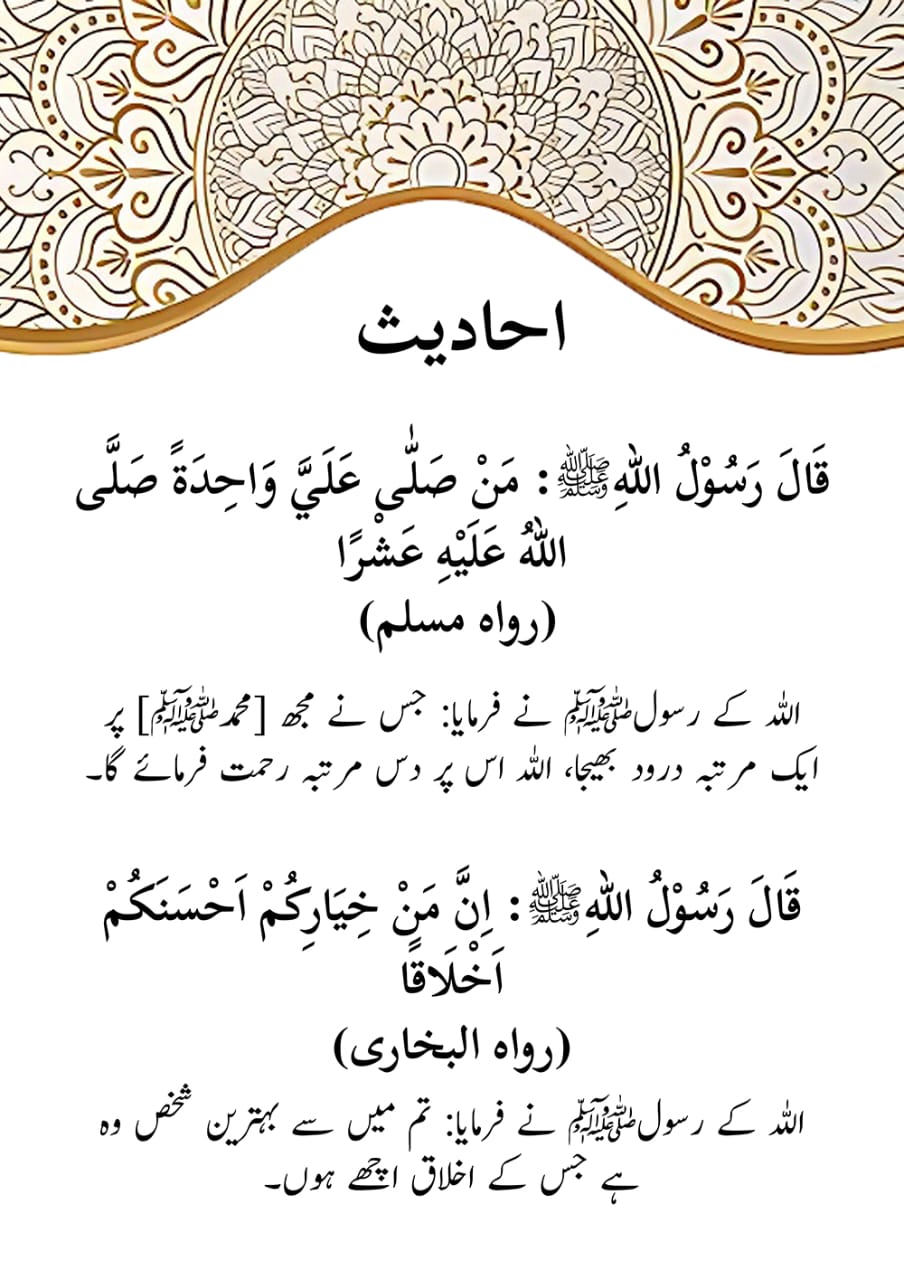 احادیث
قَالَ رَسُوْلُ اللهِﷺ: مَنْ صَلّٰى عَلَيَّ وَاحِدَةً صَلَّى
اللهُ عَلَيْهِ عَشْرًا
(رواه مسلم)
اللہ کے رسولﷺ نے فرمایا: جس نے مجھ [محمدﷺ] پر
ایک مرتبہ درود بھیجا، اللہ اس پر دس مرتبہ رحمت فرمائے گا۔
قَالَ رَسُوْلُ اللهِﷺ: اِنَّ مَنْ خِيَارِكُمْ اَحْسَنَكُمْ
اَخْلَاقًا
(رواه البخاری)
اللہ کے رسولﷺ نے فرمایا: تم میں سے بہترین شخص وہ
ہے جس کے اخلاق اچھے ہوں۔